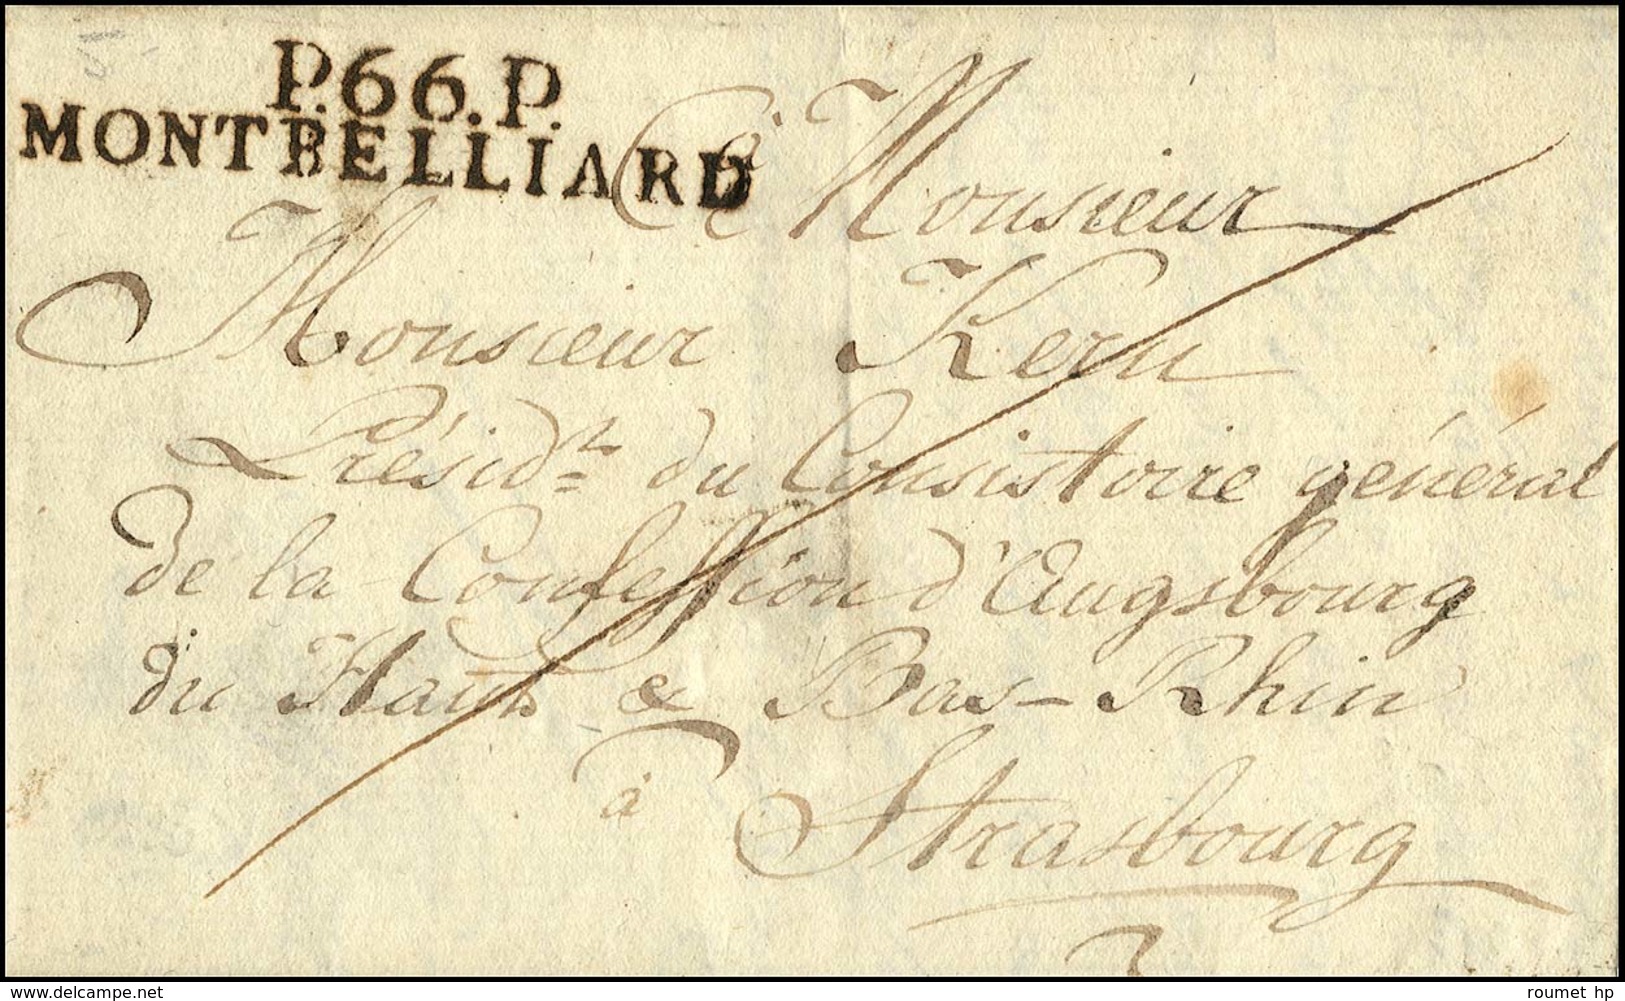 P.66.P.
MONTBELLIARD
à Monsieur
Monsieur Kern
Présid.t du Consistoire général
de la Confession d'Augsbourg
du Haut & Bas-Rhin
à
Strasbourg
delcampe.net
roumet hp